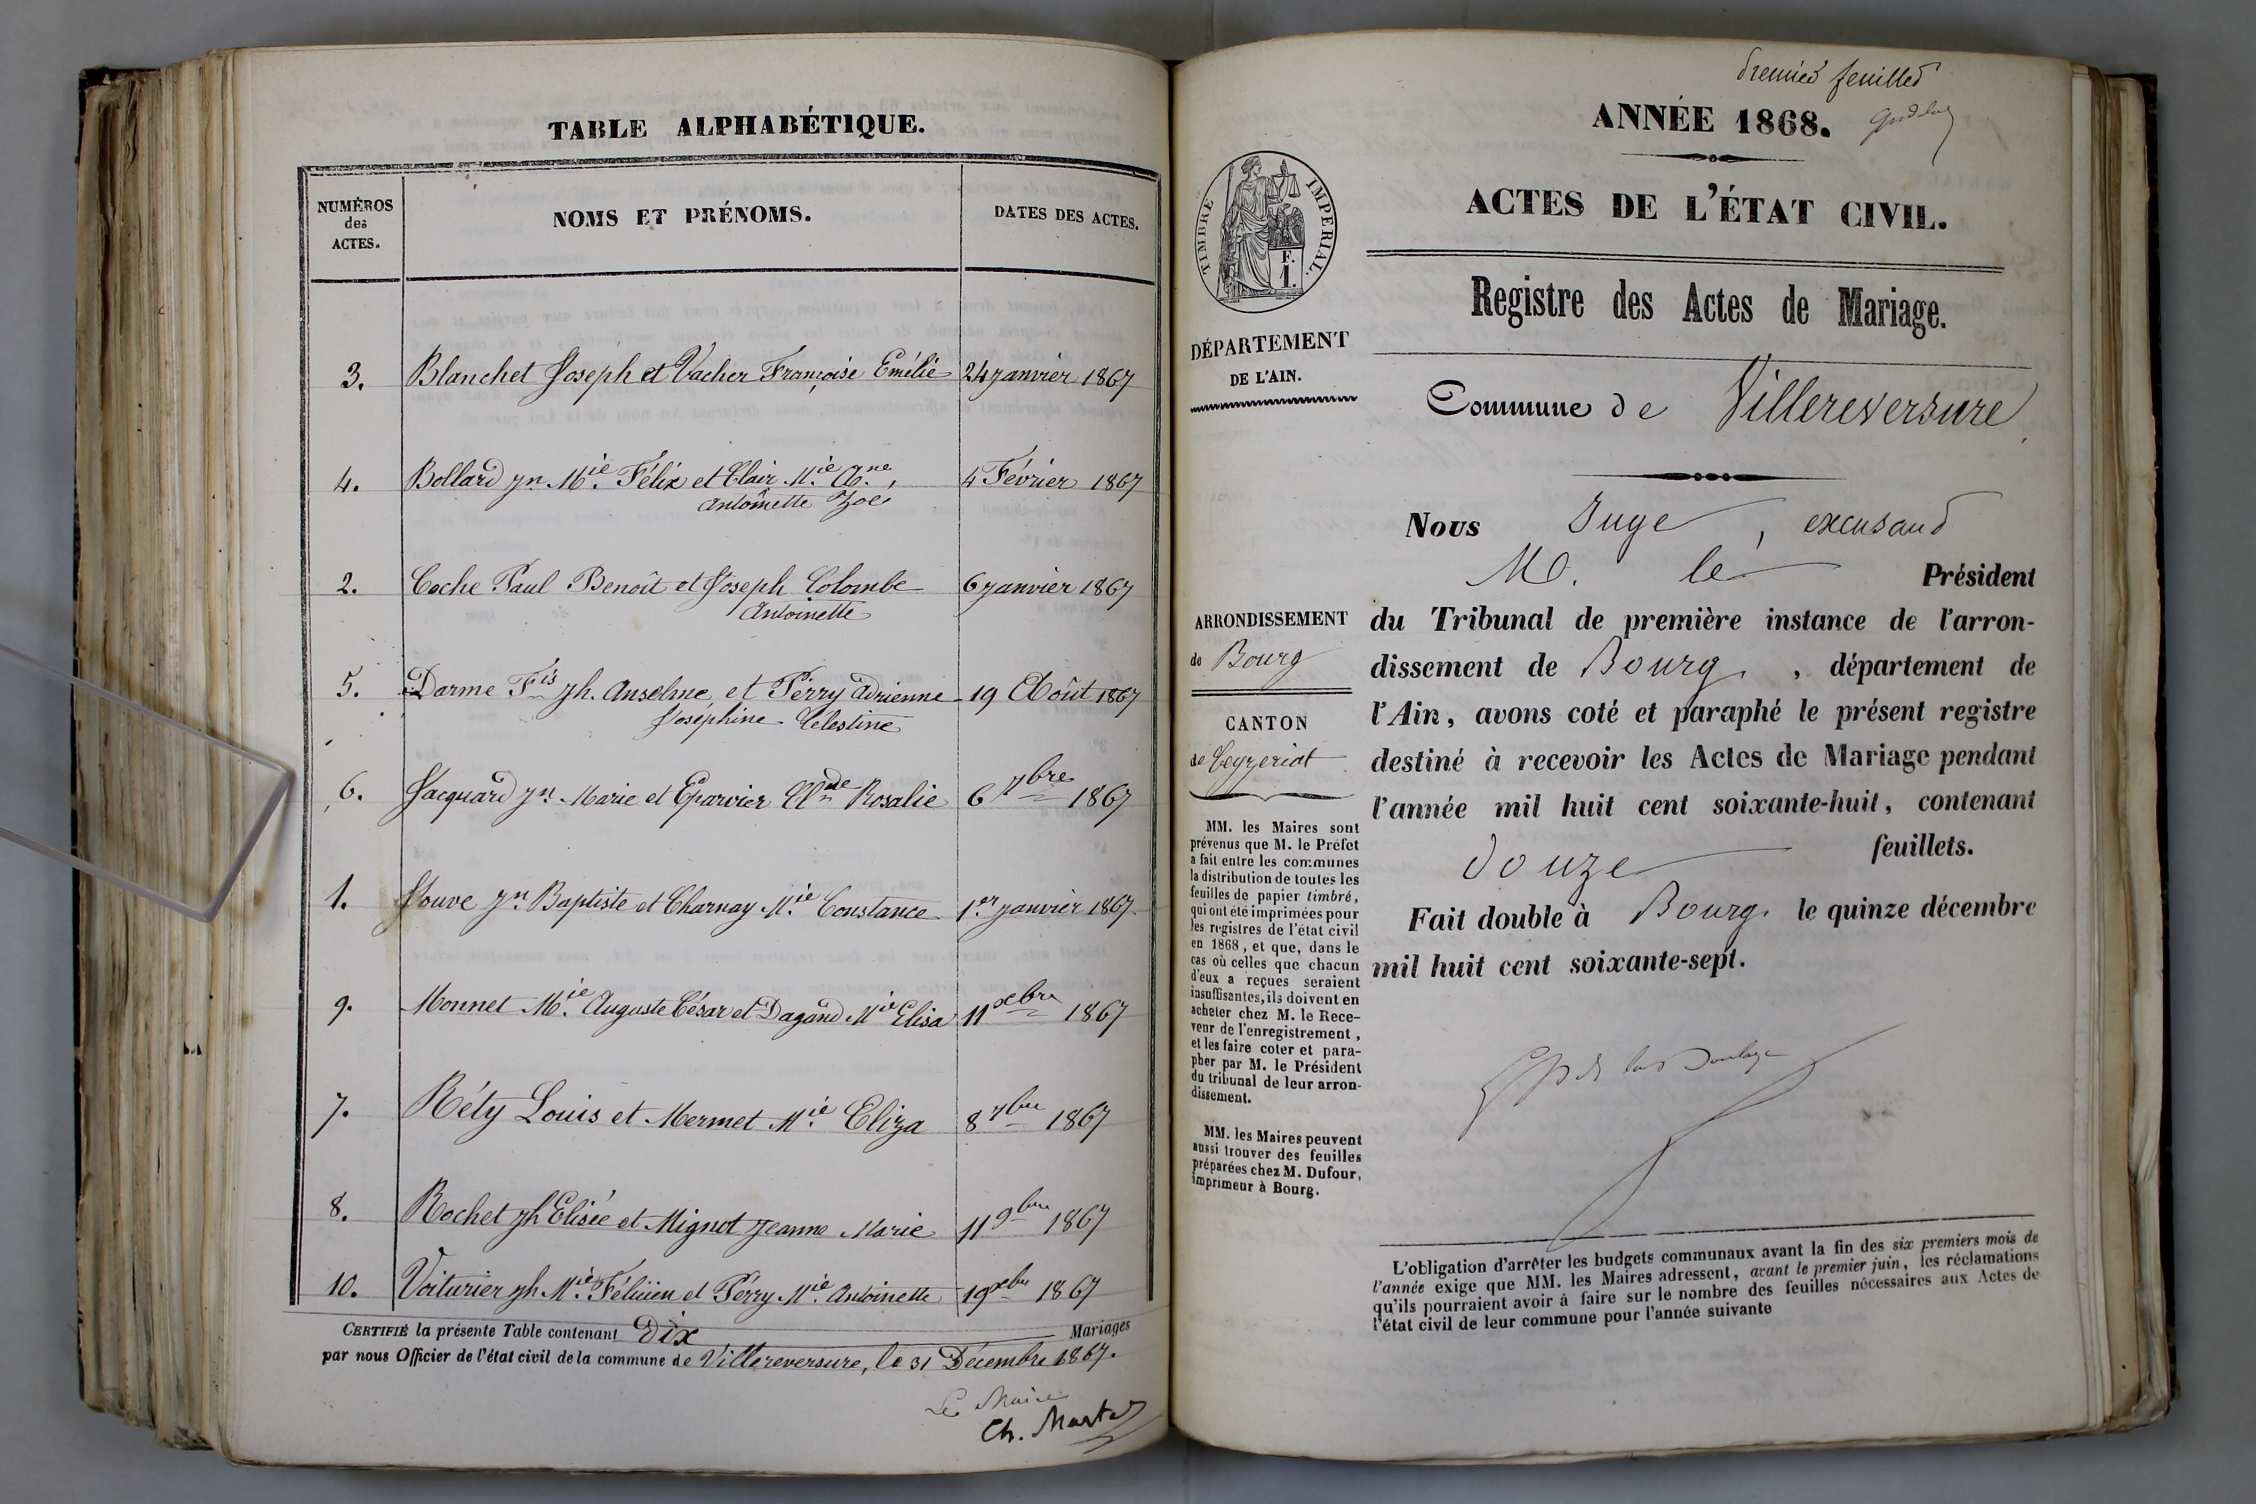 TABLE ALPHABÉTIQUE.
NUMÉROS
des
ACTES.
NOMS ET PRÉNOMS.
DATES DES ACTES.
3. Blanchet Joseph et Vacher Françoise Emélie 24 janvier 1867
4. Bollard Jn. Mie. Félix et Clair Mie. Ane., 4 Février 1867
Antoinette Zoé
2. Coche Paul Benoît et Joseph Colombe 6 janvier 1867
Antoinette
5. Darme Fis Jh. Anselme et Pérry Adrienne 19 Août 1867
Joséphine Célestine
6. Jacquard Jn. Marie et Eparvier Clnde Rosalie 6 7bre 1867
1. Jouve Jn. Baptiste et Charnay Mie. Constance 1.er janvier 1867.
9. Monnet Mie. Auguste César et Dagand Mie Elisa 11 xbre 1867
7. Réty Louis et Mermet Mie. Eliza 8 7bre 1867
8. Rochet Jh Elisée et Mignot Jeanne Marie 11 9bre 1867
10. Voiturier Jh. Mie. Félicien et Pérry Mie. Antoinette 19 xbre 1867
CERTIFIÉ la présente Table contenant Dix Mariages
par nous Officier de l'état civil de la commune de Villereversure, le 31 Décembre 1867.
Le Maire
Ch.
premier feuillet
ANNÉE 1868.
ACTES DE L'ÉTAT CIVIL.
TIMBRE IMPERIAL.
F.
1.
Registre des Actes de Mariage.
DÉPARTEMENT
DE L'AIN.
Commune de Villereversure
Nous Juge, excusant
M. le Président
du Tribunal de première instance de l'arron-
dissement de Bourg, département de
l'Ain, avons coté et paraphé le présent registre
destiné à recevoir les Actes de Mariage pendant
l'année mil huit cent soixante-huit, contenant
douze feuillets.
Fait double à Bourg, le quinze décembre
mil huit cent soixante-sept.
ARRONDISSEMENT
de Bourg
CANTON
de Ceyzeriat
MM. les Maires sont
prévenus que M. le Préfet
a fait entre les communes
la distribution de toutes les
feuilles de papier timbré,
qui ont été imprimées pour
les registres de l'état civil
en 1868, et que, dans le
cas où celles que chacun
d'eux a reçues seraient
insuffisantes, ils doivent en
acheter chez M. le Rece-
veur de l'enregistrement,
et les faire coter et para-
pher par M. le Président
du tribunal de leur arron-
dissement.
MM. les Maires peuvent
aussi trouver des feuilles
préparées chez M. Dufour,
imprimeur à Bourg.
L'obligation d'arrêter les budgets communaux avant la fin des six premiers mois de
l'année exige que MM. les Maires adressent, avant le premier juin, les réclamations
qu'ils pourraient avoir à faire sur le nombre des feuilles nécessaires aux Actes de
l'état civil de leur commune pour l'année suivante